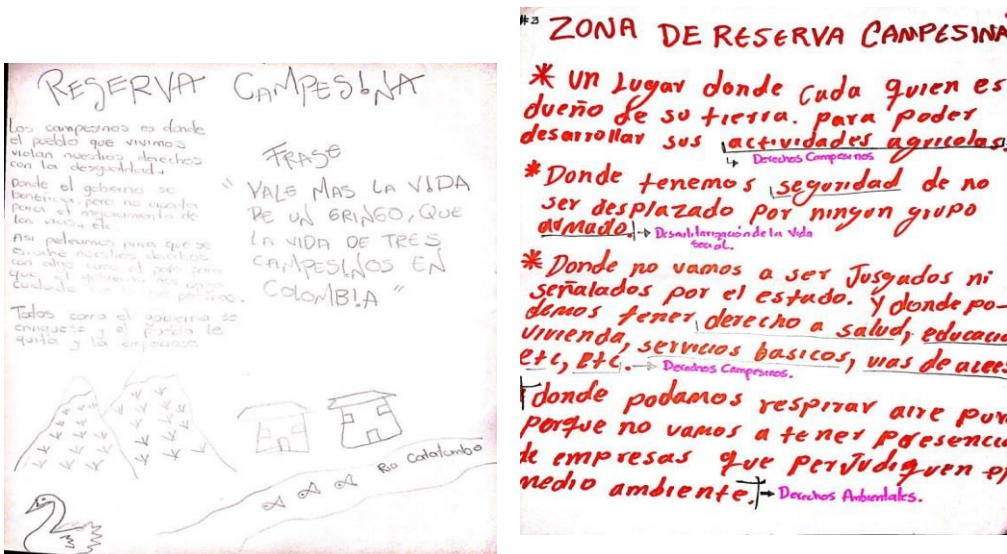 RESERVA CAMPESINA
Los campesinos es donde
el pueblo que vivimos
violan nuestros derechos
con la desigualdad.
Donde el gobierno se
beneficia, pero no aporta
para el mejoramiento de
las vias, etc.
Asi peleamos para que se
nuestros derechos
con algo como el paro para
que el gobierno nos
Todos como el gobierno se
enriquese y el pueblo le
quita y la
FRASE
" VALE MAS LA VIDA
DE UN GRINGO, QUE
LA VIDA DE TRES
CAMPESINOS EN
COLOMBIA "
Rio Catatumbo
#3 ZONA DE RESERVA CAMPESINA
* Un Lugar donde cada quien es
dueño de su tierra. para poder
desarrollar sus actividades agricolas.
↳ Derechos Campesinos
* Donde tenemos seguridad de no
ser desplazado por ningun grupo
armado. → Desmilitarización de la Vida
Social.
* Donde no vamos a ser Jusgados ni
señalados por el estado. Y donde po-
demos tener derecho a salud, educacio
vivienda, servicios basicos, vias de acces
etc, etc. → Derechos Campesinos.
donde podamos respirar aire pur
porque no vamos a tener presencia
de empresas que perjudiquen el
medio ambiente. → Derechos Ambientales.